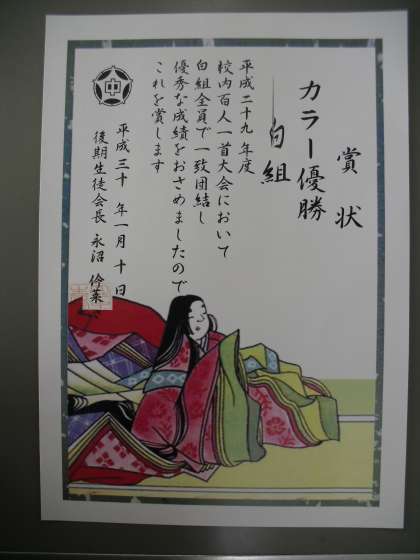 賞状
カラー優勝
白組
平成二十九年度
校内百人一首大会において
白組全員で一致団結し
優秀な成績をおさめましたので
これを賞します
平成三十年一月十日
後期生徒会長 永沼 伶菜
中